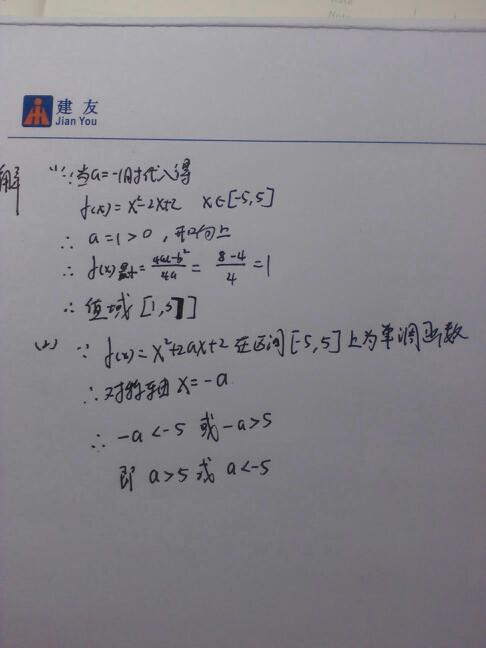 建友
Jian You
解 (1) ∵当a=-1时代入得
f(x)=x²-2x+2 x∈[-5,5]
∴ a=1>0,开口向上
∴ f(x)最小=4ac-b²/4a=8-4/4=1
∴ 值域[1,37]
(2) ∵ f(x)=x²+2ax+2在区间[-5,5]上为单调函数
∴对称轴x=-a
∴ -a<-5 或-a>5
即 a>5 或 a<-5